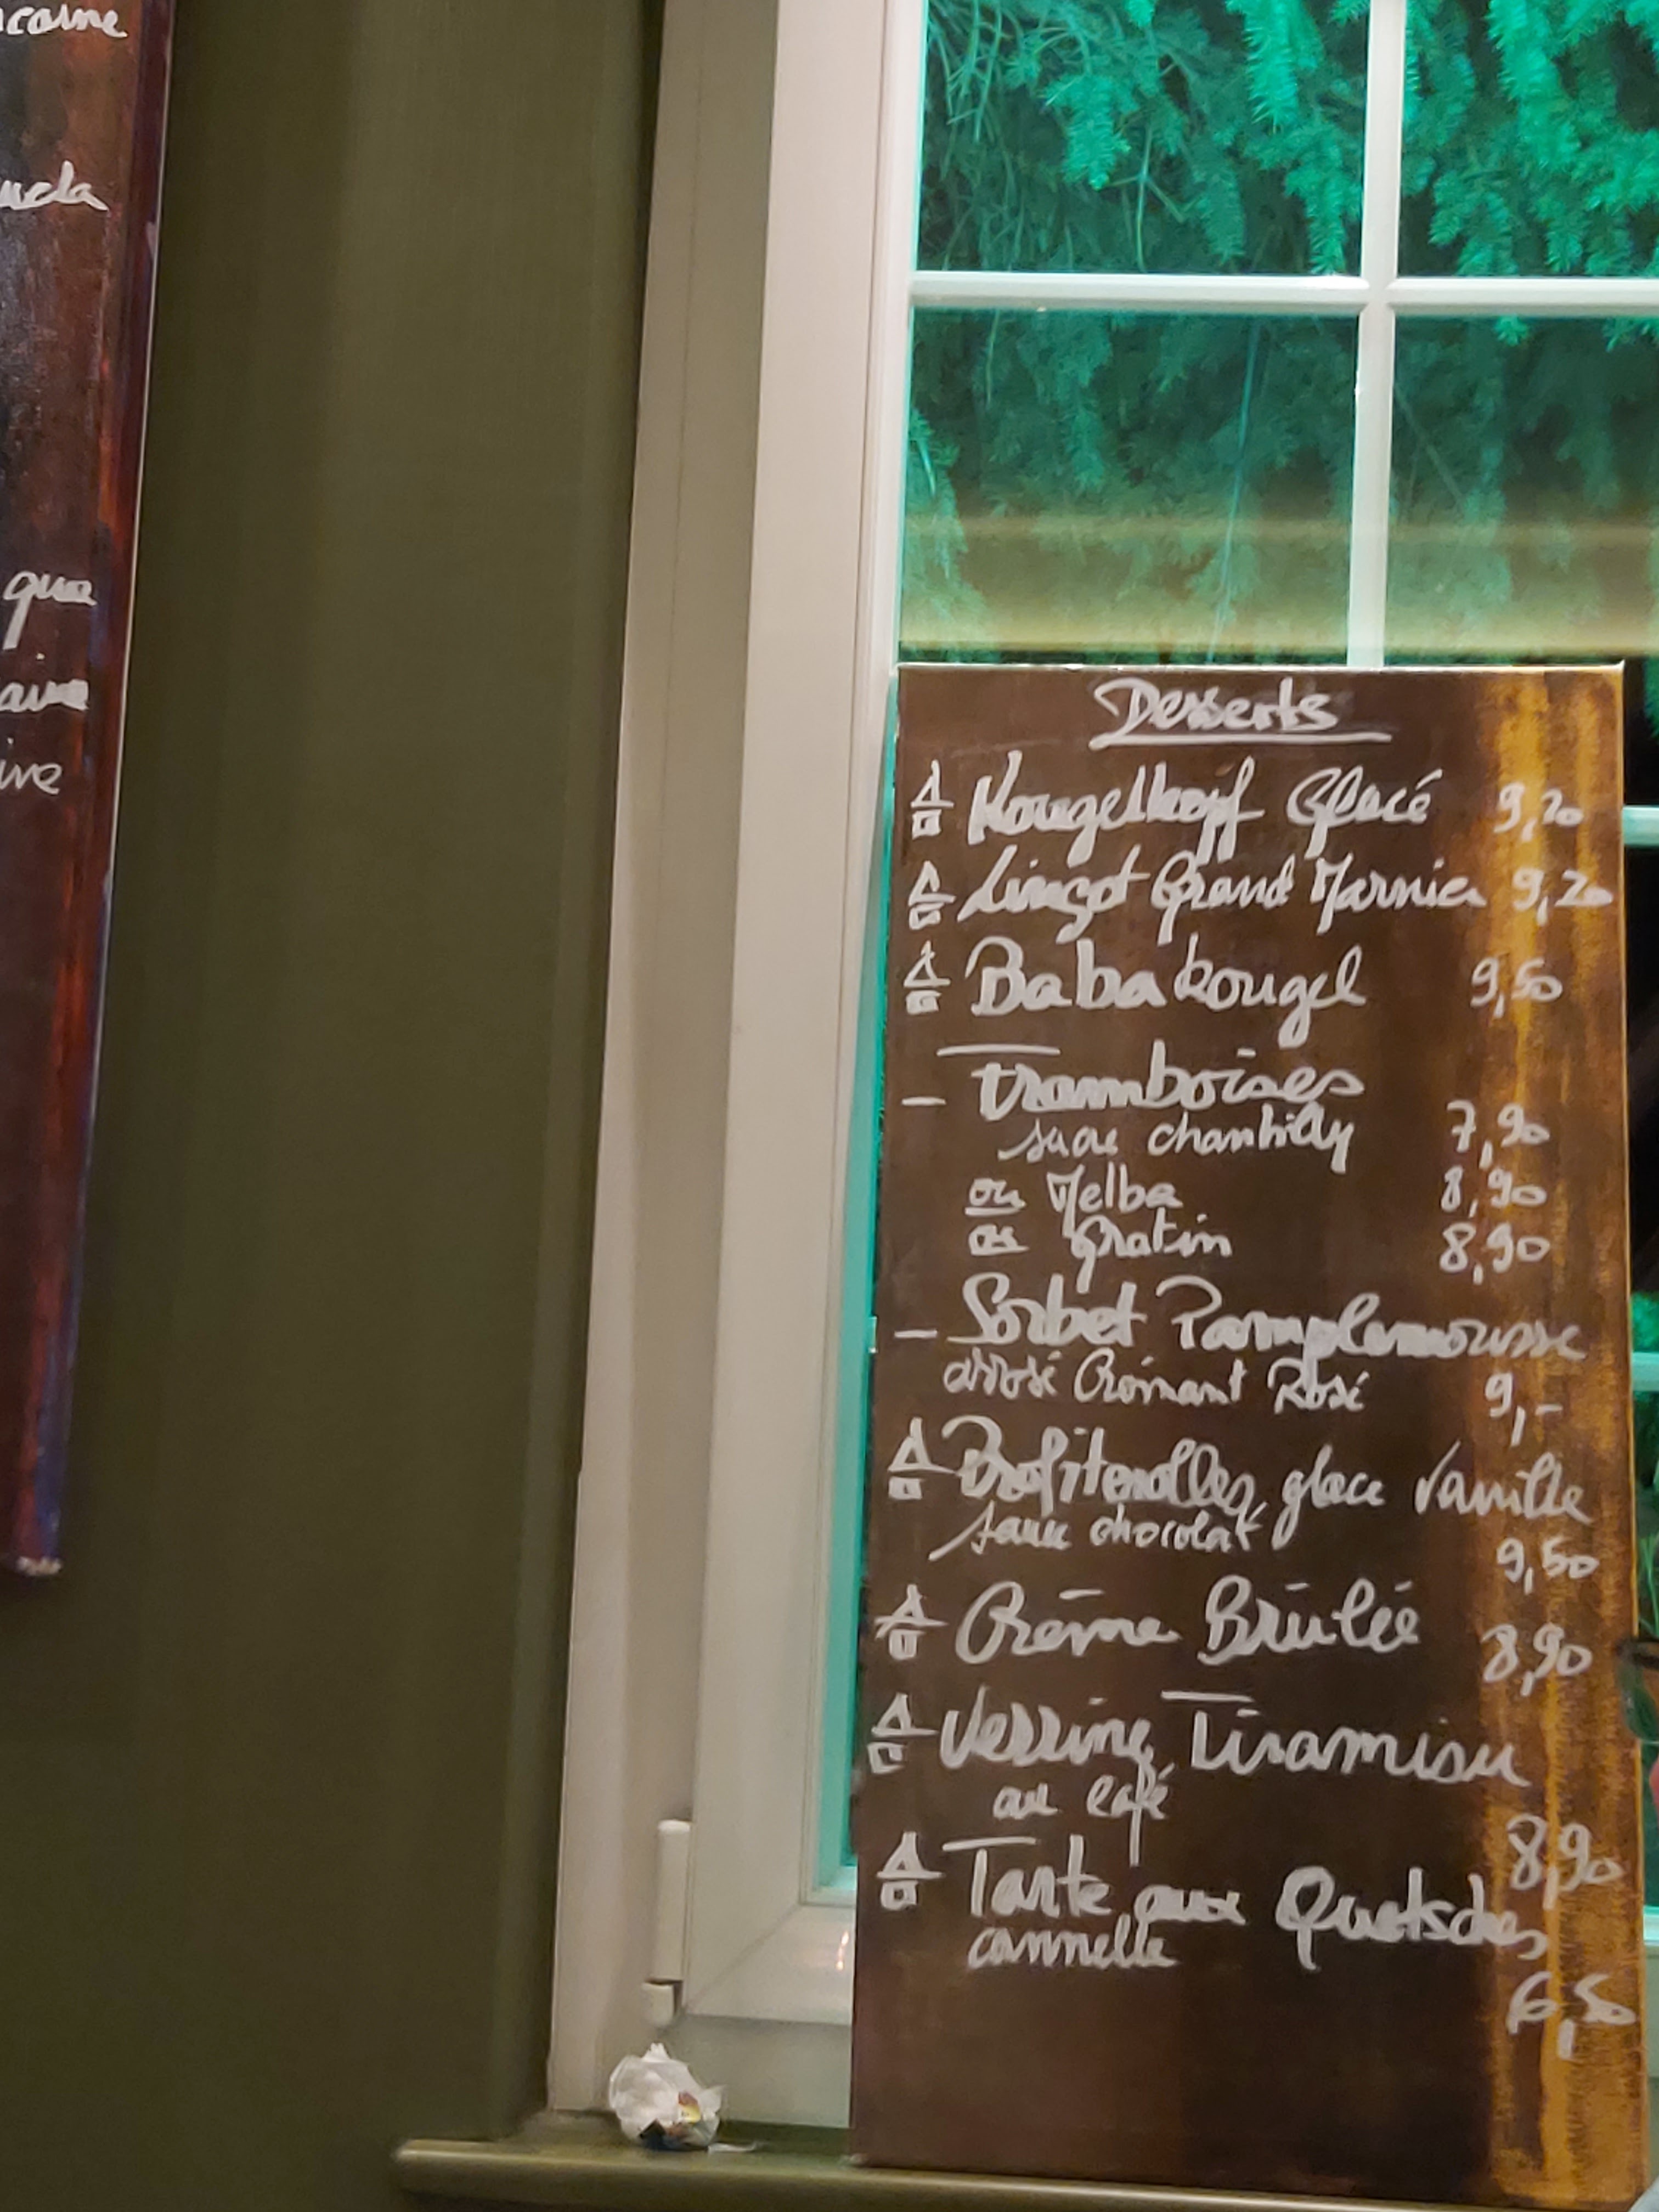 que
ive
Desserts
Kougelhopf Glacé 9,20
Lingot Grand Marnier 9,20
Baba kougel 9,50
– Framboises
sucre chantilly 7,90
ou Melba 8,90
ou Gratin 8,90
– Sorbet Pamplemousse
arrosé Crémant Rosé 9,-
Profiterolles, glace vanille
sauce chocolat 9,50
Crème Brûlée 8,90
Verrine Tiramisu
au café
8,90
Tarte aux Quetsches
cannelle
6,50